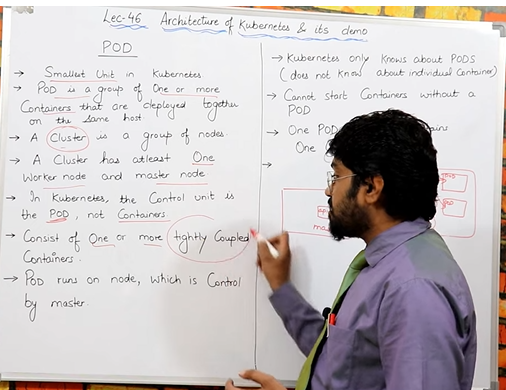 Lec-46 Architecture of Kubernetes & its demo
POD
→ Smallest Unit in Kubernetes
→ POD is a group of One or more
Containers that are deployed together
on the same host
→ A Cluster is a group of nodes.
→ A Cluster has atleast One
Worker node and master node
→ In Kubernetes, the Control unit is
the POD, not Containers
→ Consist of One or more tightly Coupled
Containers.
→ POD runs on node, which is Control
by master.
→ Kubernetes only knows about PODS
(does not know about individual Container)
→ Cannot start Containers without a
POD
→ One POD
One
→